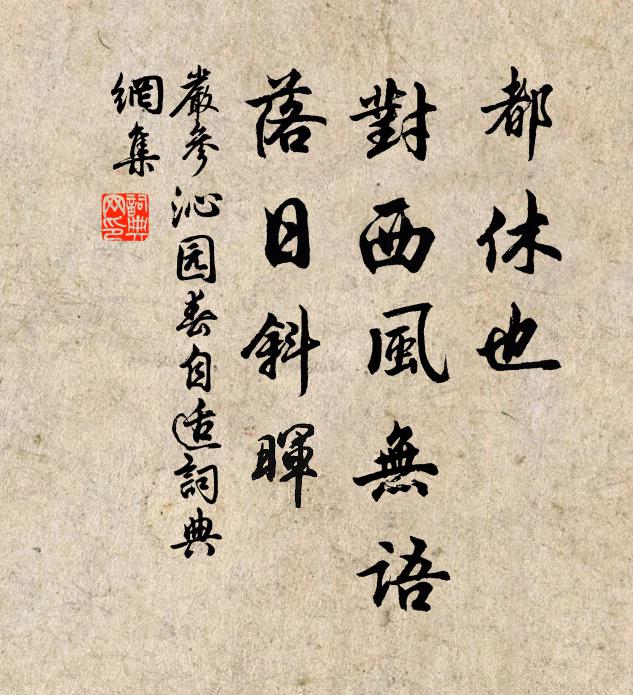 都休也
對西風無語
落日斜暉
嚴參沁园春自适詞典
網集
詞典
网印